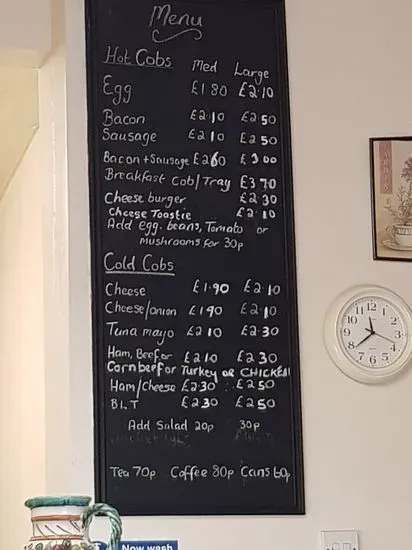 Menu
Hot Cobs Med Large
Egg £1 80 £2·10
Bacon £2·10 £2·50
Sausage £2 10 £2 50
Bacon + Sausage £2 60 £3 00
Breakfast Cob/Tray £3 70
Cheese burger £2 30
Cheese Toastie £2 10
Add egg. beans, Tomato or
mushrooms for 30p
Cold Cobs
Cheese £1·90 £2·10
Cheese/onion £1 90 £2·10
Tuna mayo £2 10 £2·30
Ham, Beef or £2 10 £2 30
Corn beef or Turkey or CHICKEN
Ham/cheese £2·30 £2·50
B.L.T £2·30 £2 50
Add Salad 20p 30p
Tea 70p Coffee 80p Cans 60p
Now wash
12
1
2
3
4
5
6
7
8
9
10
11